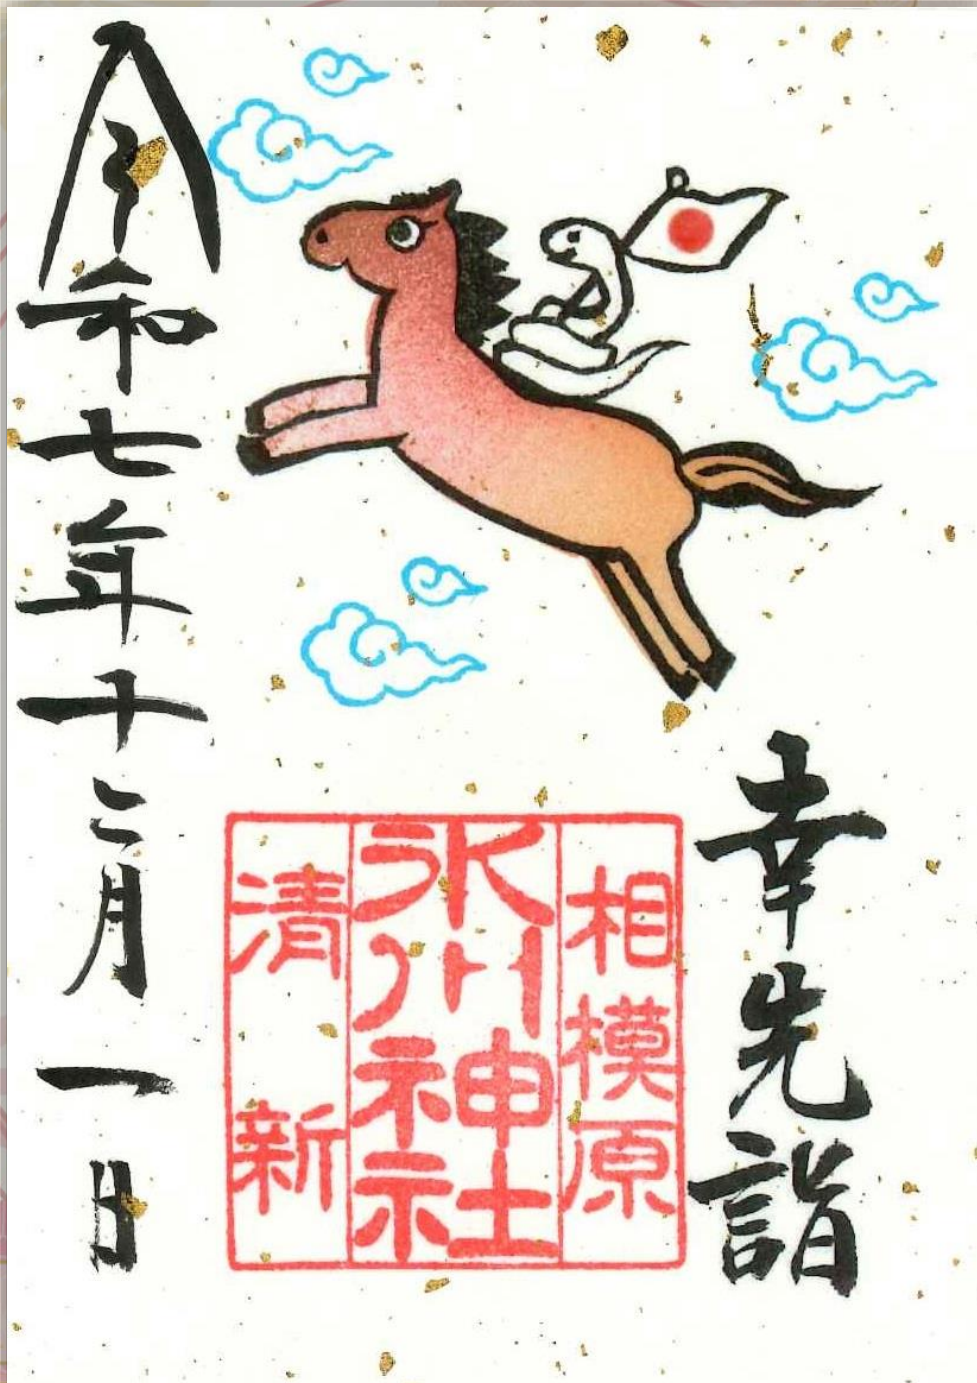 幸先詣
相模原
氷川神社
清新
令和七年十二月一日